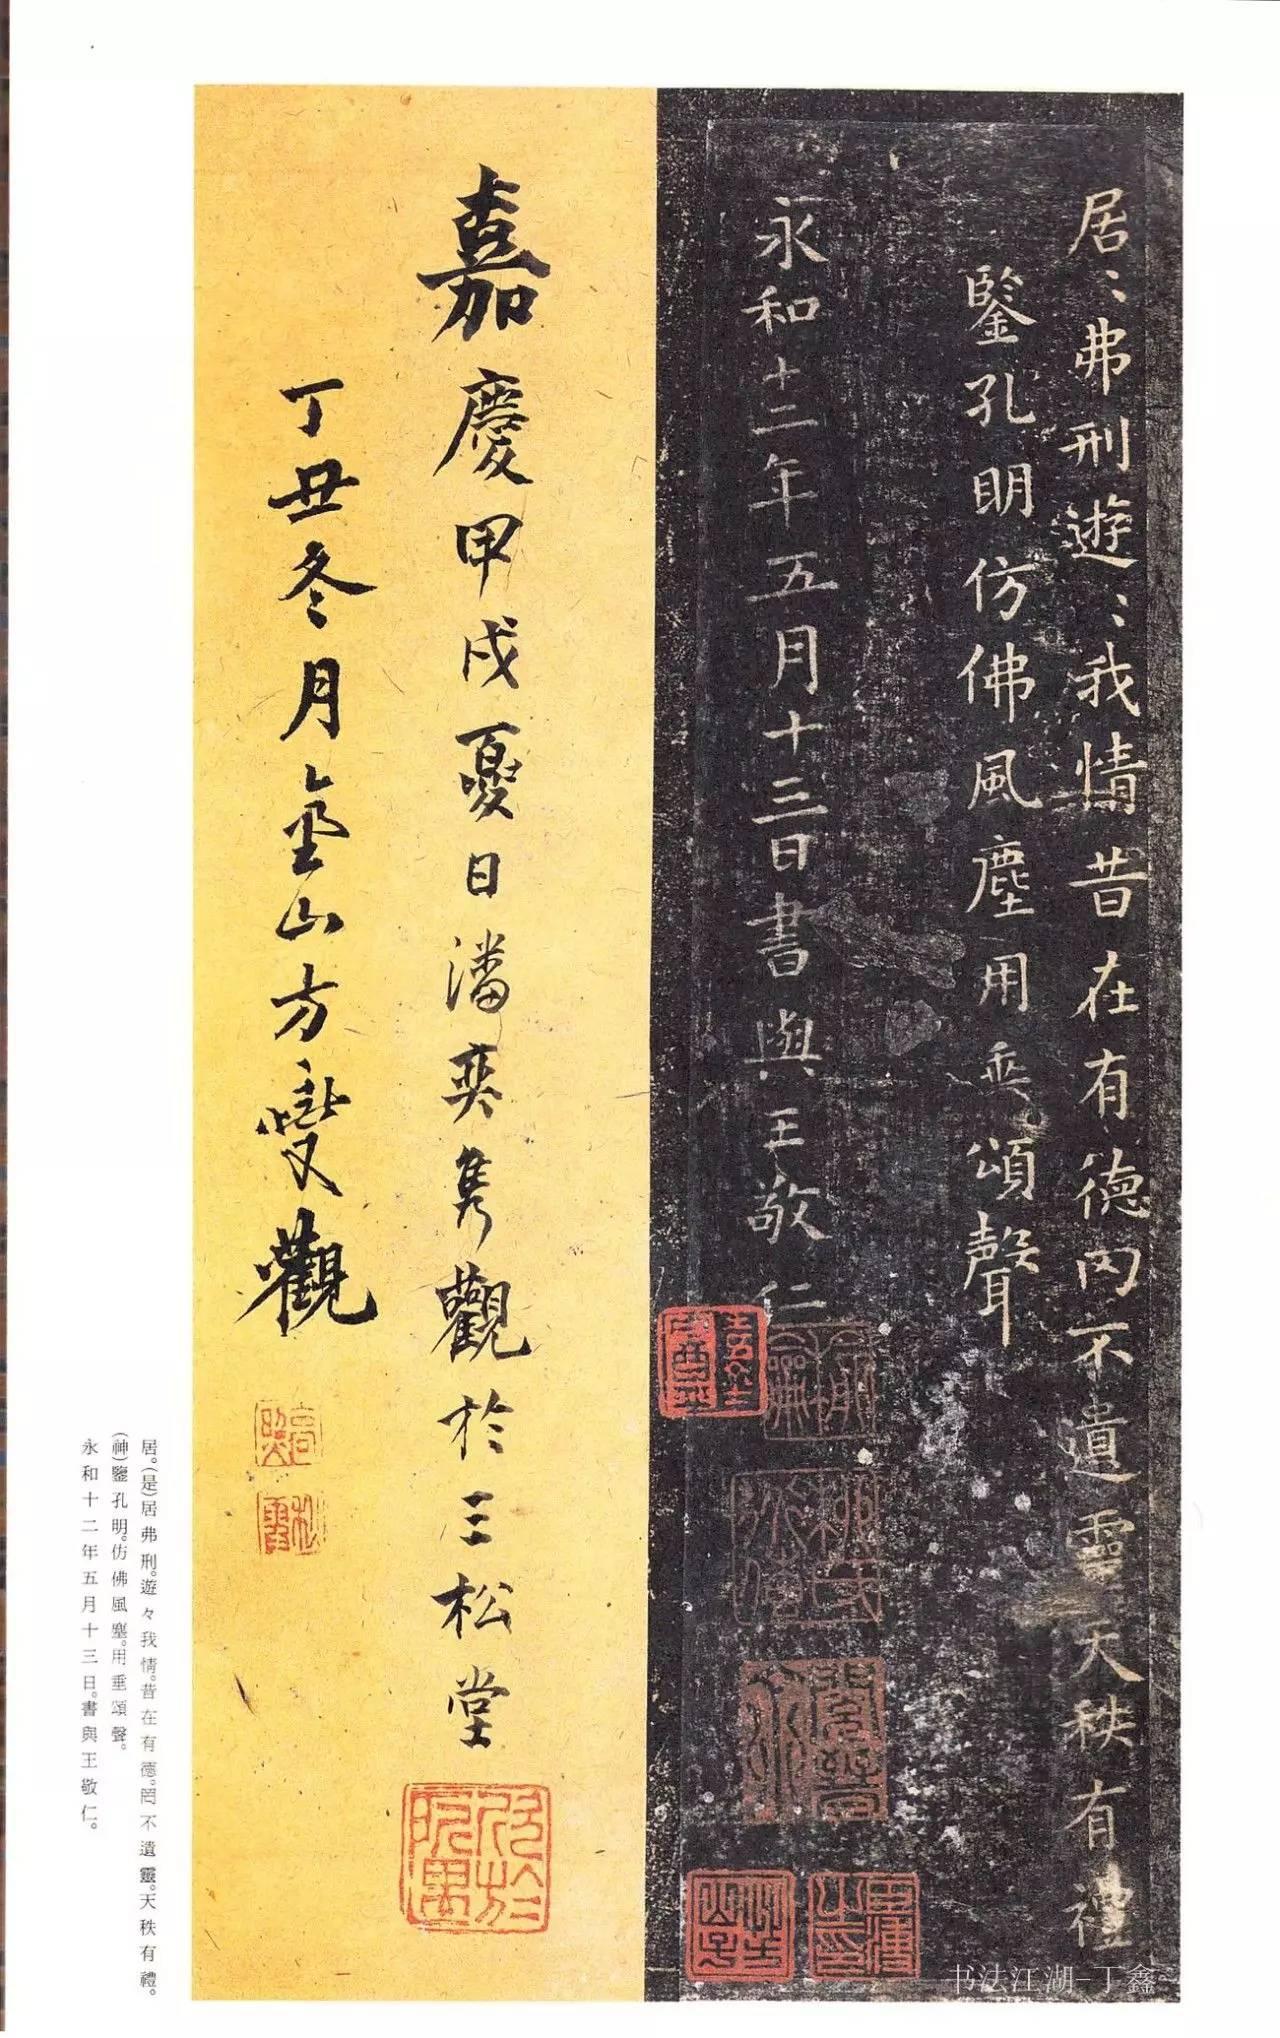 居〻弗刑遊〻我情昔在有德罔不遺靈天秩有禮
鑒孔明仿佛風塵用垂頌聲
永和十二年五月十三日書與王敬仁
嘉慶甲戌夏日潘奕雋觀於三松堂
丁丑冬月壑山方燮觀
居。(是)居弗刑。遊々我情。昔在有德。罔不遺靈。天秩有禮。
(神)鑒孔明。仿佛風塵。用垂頌聲。
永和十二年五月十三日。書與王敬仁。
书法江湖-丁鑫